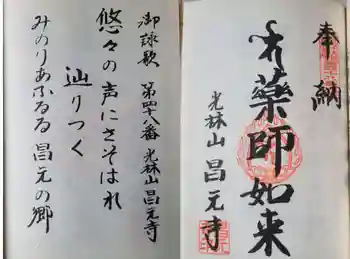 奉納
薬師如来
光林山 昌元寺
御詠歌 第四十八番 光林山昌元寺
悠々の声にさそはれ
辿りつく
みのりあふるる昌元の郷